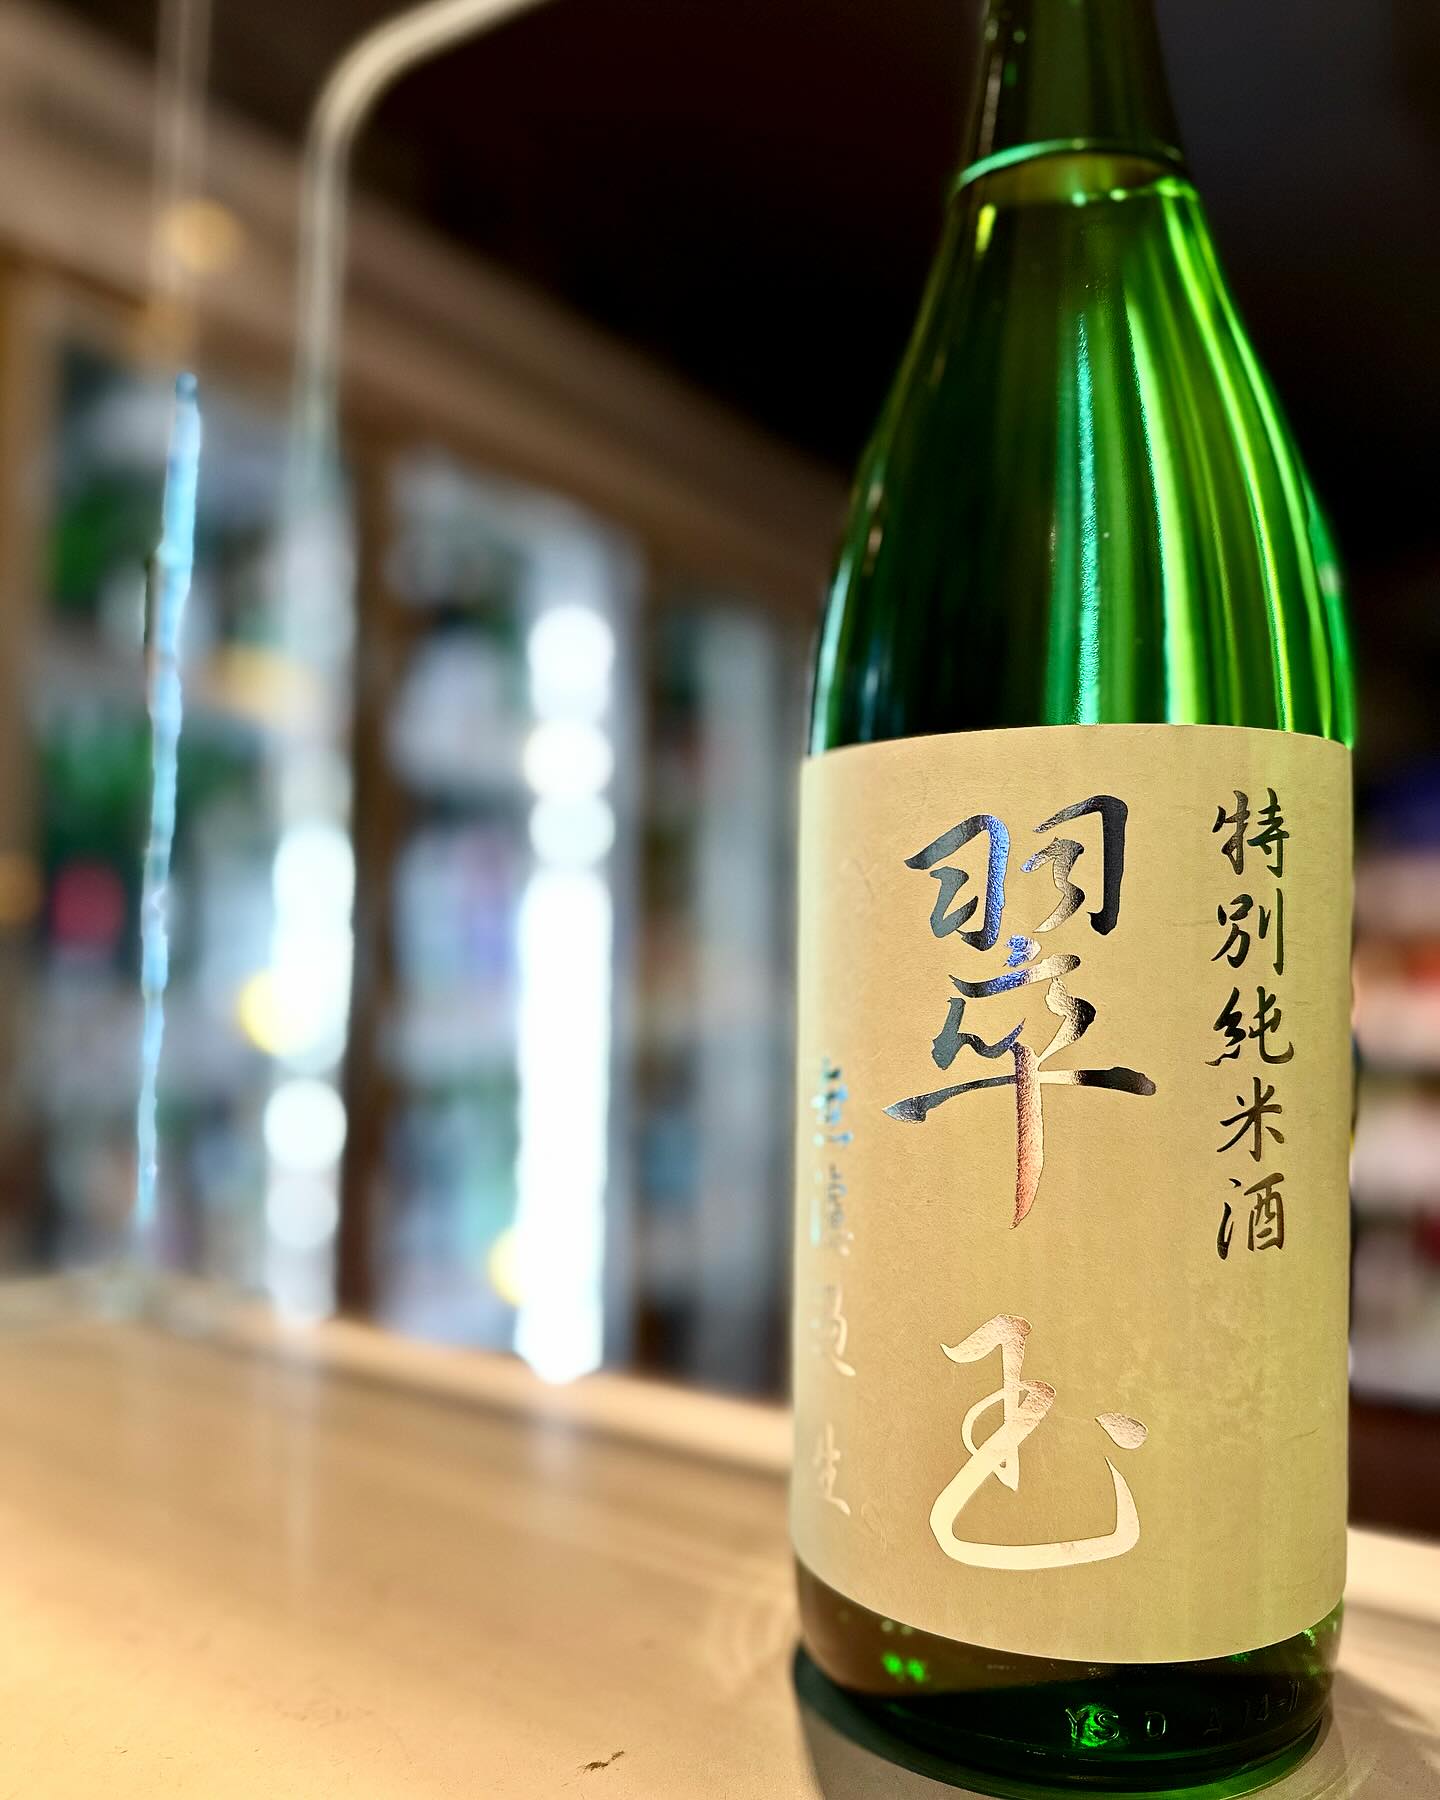 特別純米酒
翠玉
無濾過生
YSO